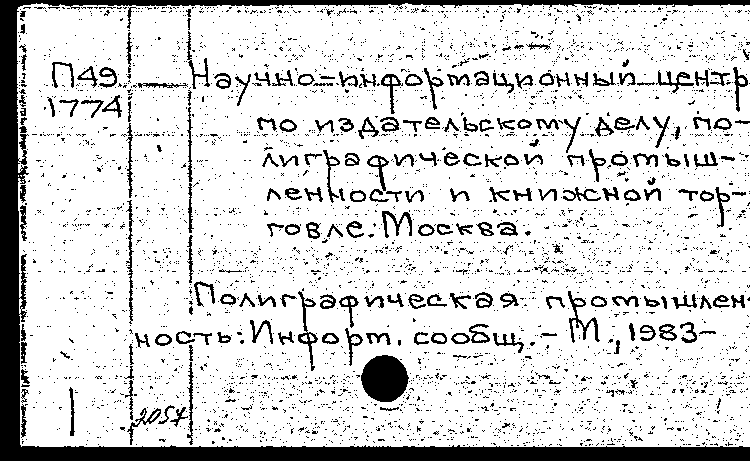 П49
1774
Научно-информационный центр
по издательскому делу, по-
лиграфической промыш-
ленности и книжной тор-
говле. Москва.
Полиграфическая промышлен-
ность: Информ. сообщ. - М., 1983-
2057